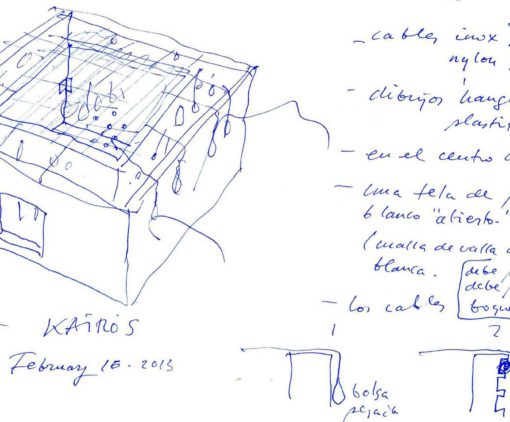 - cables inox
nylon
- dibujos hang
plasti
- en el centro
- una tela de
blanco "abierto."
(malla de valla
blanca.
debe
debe
- los cables
KAIROS
February 16 - 2013
1
2
bolsa